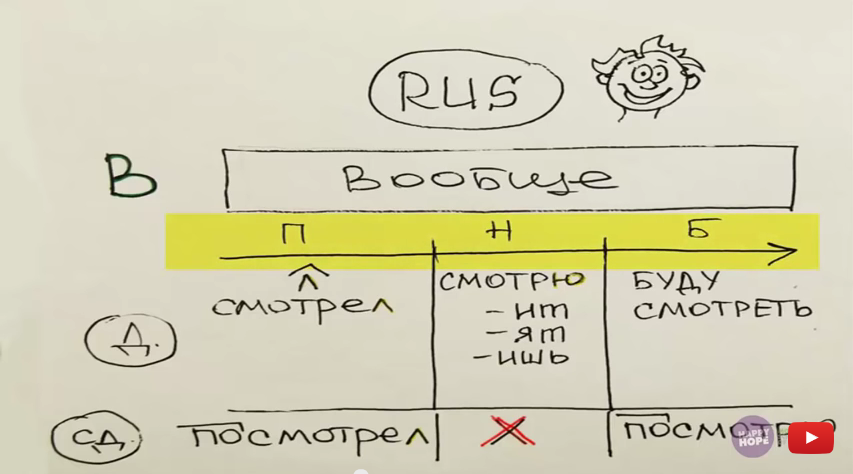 RUS
В
Вообще
П Н Б
^
смотрел
СМОТРЮ
-ит
-ят
-ишь
БУДУ
СМОТРЕТЬ
Д.
СД.
ПОСМОТРЕЛ
HAPPY
HOPE